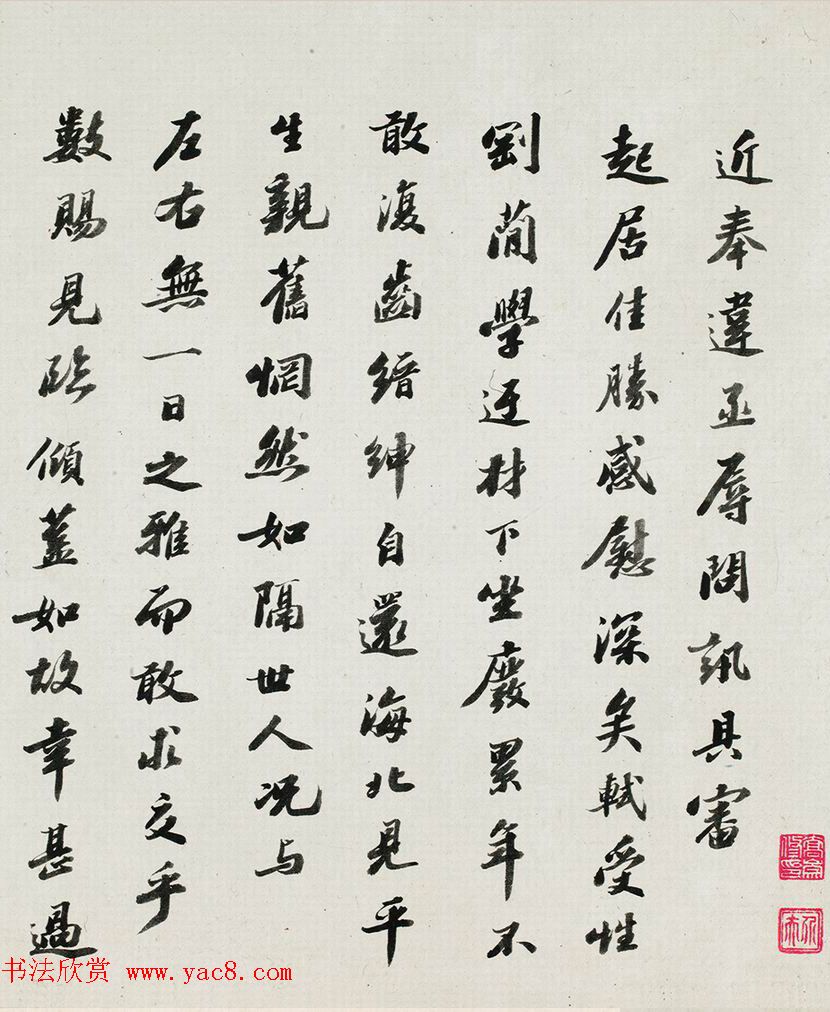 近奉違亟辱問訊具審
起居佳勝感慰深矣軾受性
剛蕑學迂材下坐廢累年不
敢復齒縉紳自還海北見平
生親舊惘然如隔世人况与
左右無一日之雅而敢求交乎
數賜見臨傾蓋如故幸甚過
书法欣赏 www.yac8.com